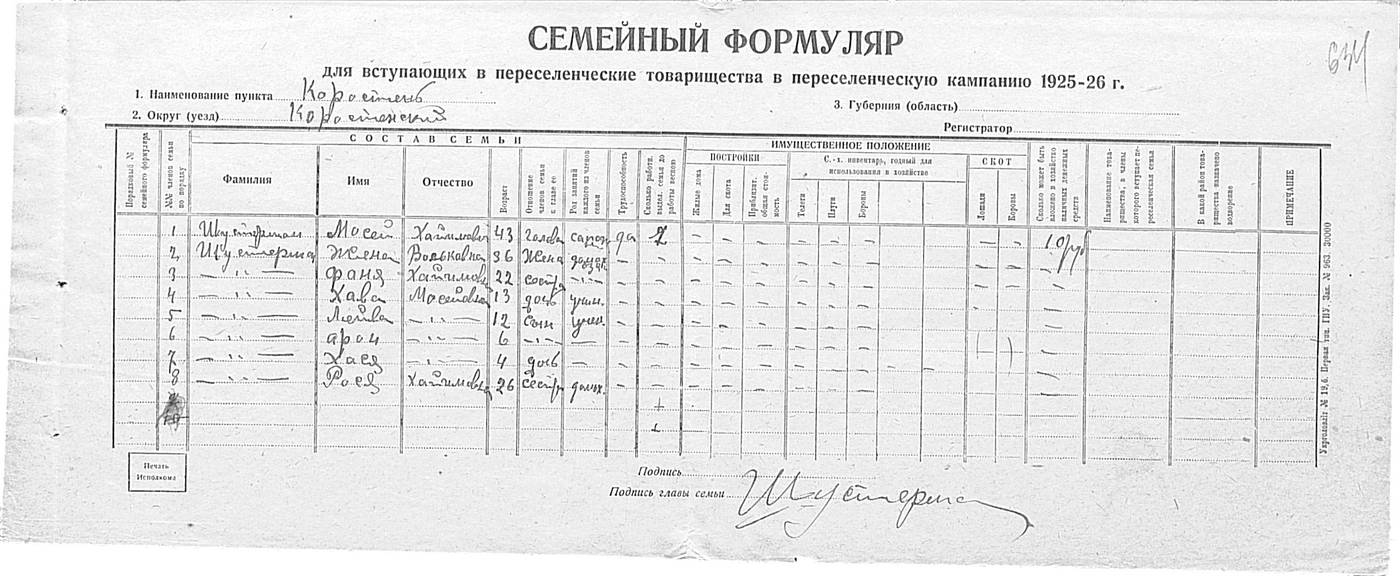 СЕМЕЙНЫЙ ФОРМУЛЯР
634
для вступающих в переселенческие товарищества в переселенческую кампанию 1925-26 г.
1. Наименование пункта Коростень
3. Губерния (область)
2. Округ (уезд) Коростенский
Регистратор
Порядковый № семейного формуляра
№№ членов семьи по порядку
СОСТАВ СЕМЬИ
Фамилия
Имя
Отчество
Возраст
Отношение членов семьи к главе ее
Род занятий каждого из членов семьи
Трудоспособность
Сколько работн. выдел. семья до работы весною
ИМУЩЕСТВЕННОЕ ПОЛОЖЕНИЕ
ПОСТРОЙКИ
Жилые дома
Для скота
Приблизит. общая стоимость
С.-х. инвентарь, годный для использования в хозяйстве
Телеги
Плуги
Бороны
СКОТ
Лошади
Коровы
Сколько может быть вложено в хозяйство наличных денежных средств
Наименование товарищества, в члены которого вступает переселенческая семья
В какой район товарищества назначено водворение
ПРИМЕЧАНИЕ
1 Шустерман Мосей Хаимович 43 голова сапож да 2 — — — — — — — — 10 руб
2 Шустерман Жена Вольковна 36 Жена домохоз — — — — — — — — —
3 — " — Фаня Хаимовна 22 сестра — " — — — — — — — — — —
4 — " — Хава Мосеевна 13 дочь учен. — — — — — — — — —
5 — " — Лейва — " — 12 сын учен. — — — — — — — — —
6 — " — Арон — " — 6 — " — — — — — — — — — —
7 — " — Хася — " — 4 дочь — — — — — — — — —
8 — " — Рося Хаимовна 26 сестра домох. — — — — — — — — —
10
Печать Исполкома
Подпись
Подпись главы семьи Шустерман
Укрглавліт № 19,6. Первая тип. ГПУ. Зак. № 963. 30000